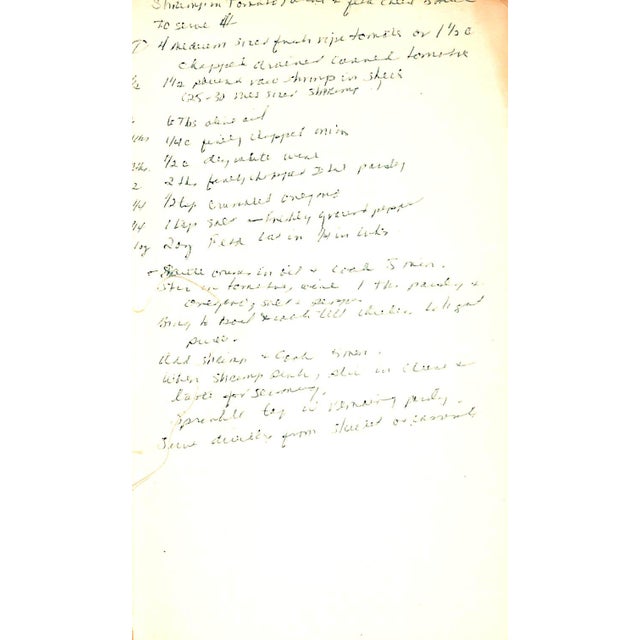 Shrimp in Tomato & feta cheese sauce
To serve 4
4 medium sized fresh ripe tomatoes or 1 1/2 c
chopped drained canned tomatoes
1 1/2 pounds raw shrimp in shell
(25-30 med sized shrimp)
6 Tbs olive oil
1/4 c finely chopped onion
1/2 c dry white wine
2 Tbs finely chopped parsley
1/2 tsp crumbled oregano
1 tsp salt - freshly ground pepper
2 oz Feta cut in 1/4 in cubs
onions in oil & cook 5 min.
Stir in tomatoes, wine 1 Tbs parsley &
oregano, salt &
Bring to boil & cook till thickens to light
puree.
Add shrimp & cook 5 min.
When shrimp pink, stir in cheese &
taste for seasoning.
Sprinkle top w remaining parsley.
Serve directly from skillet or